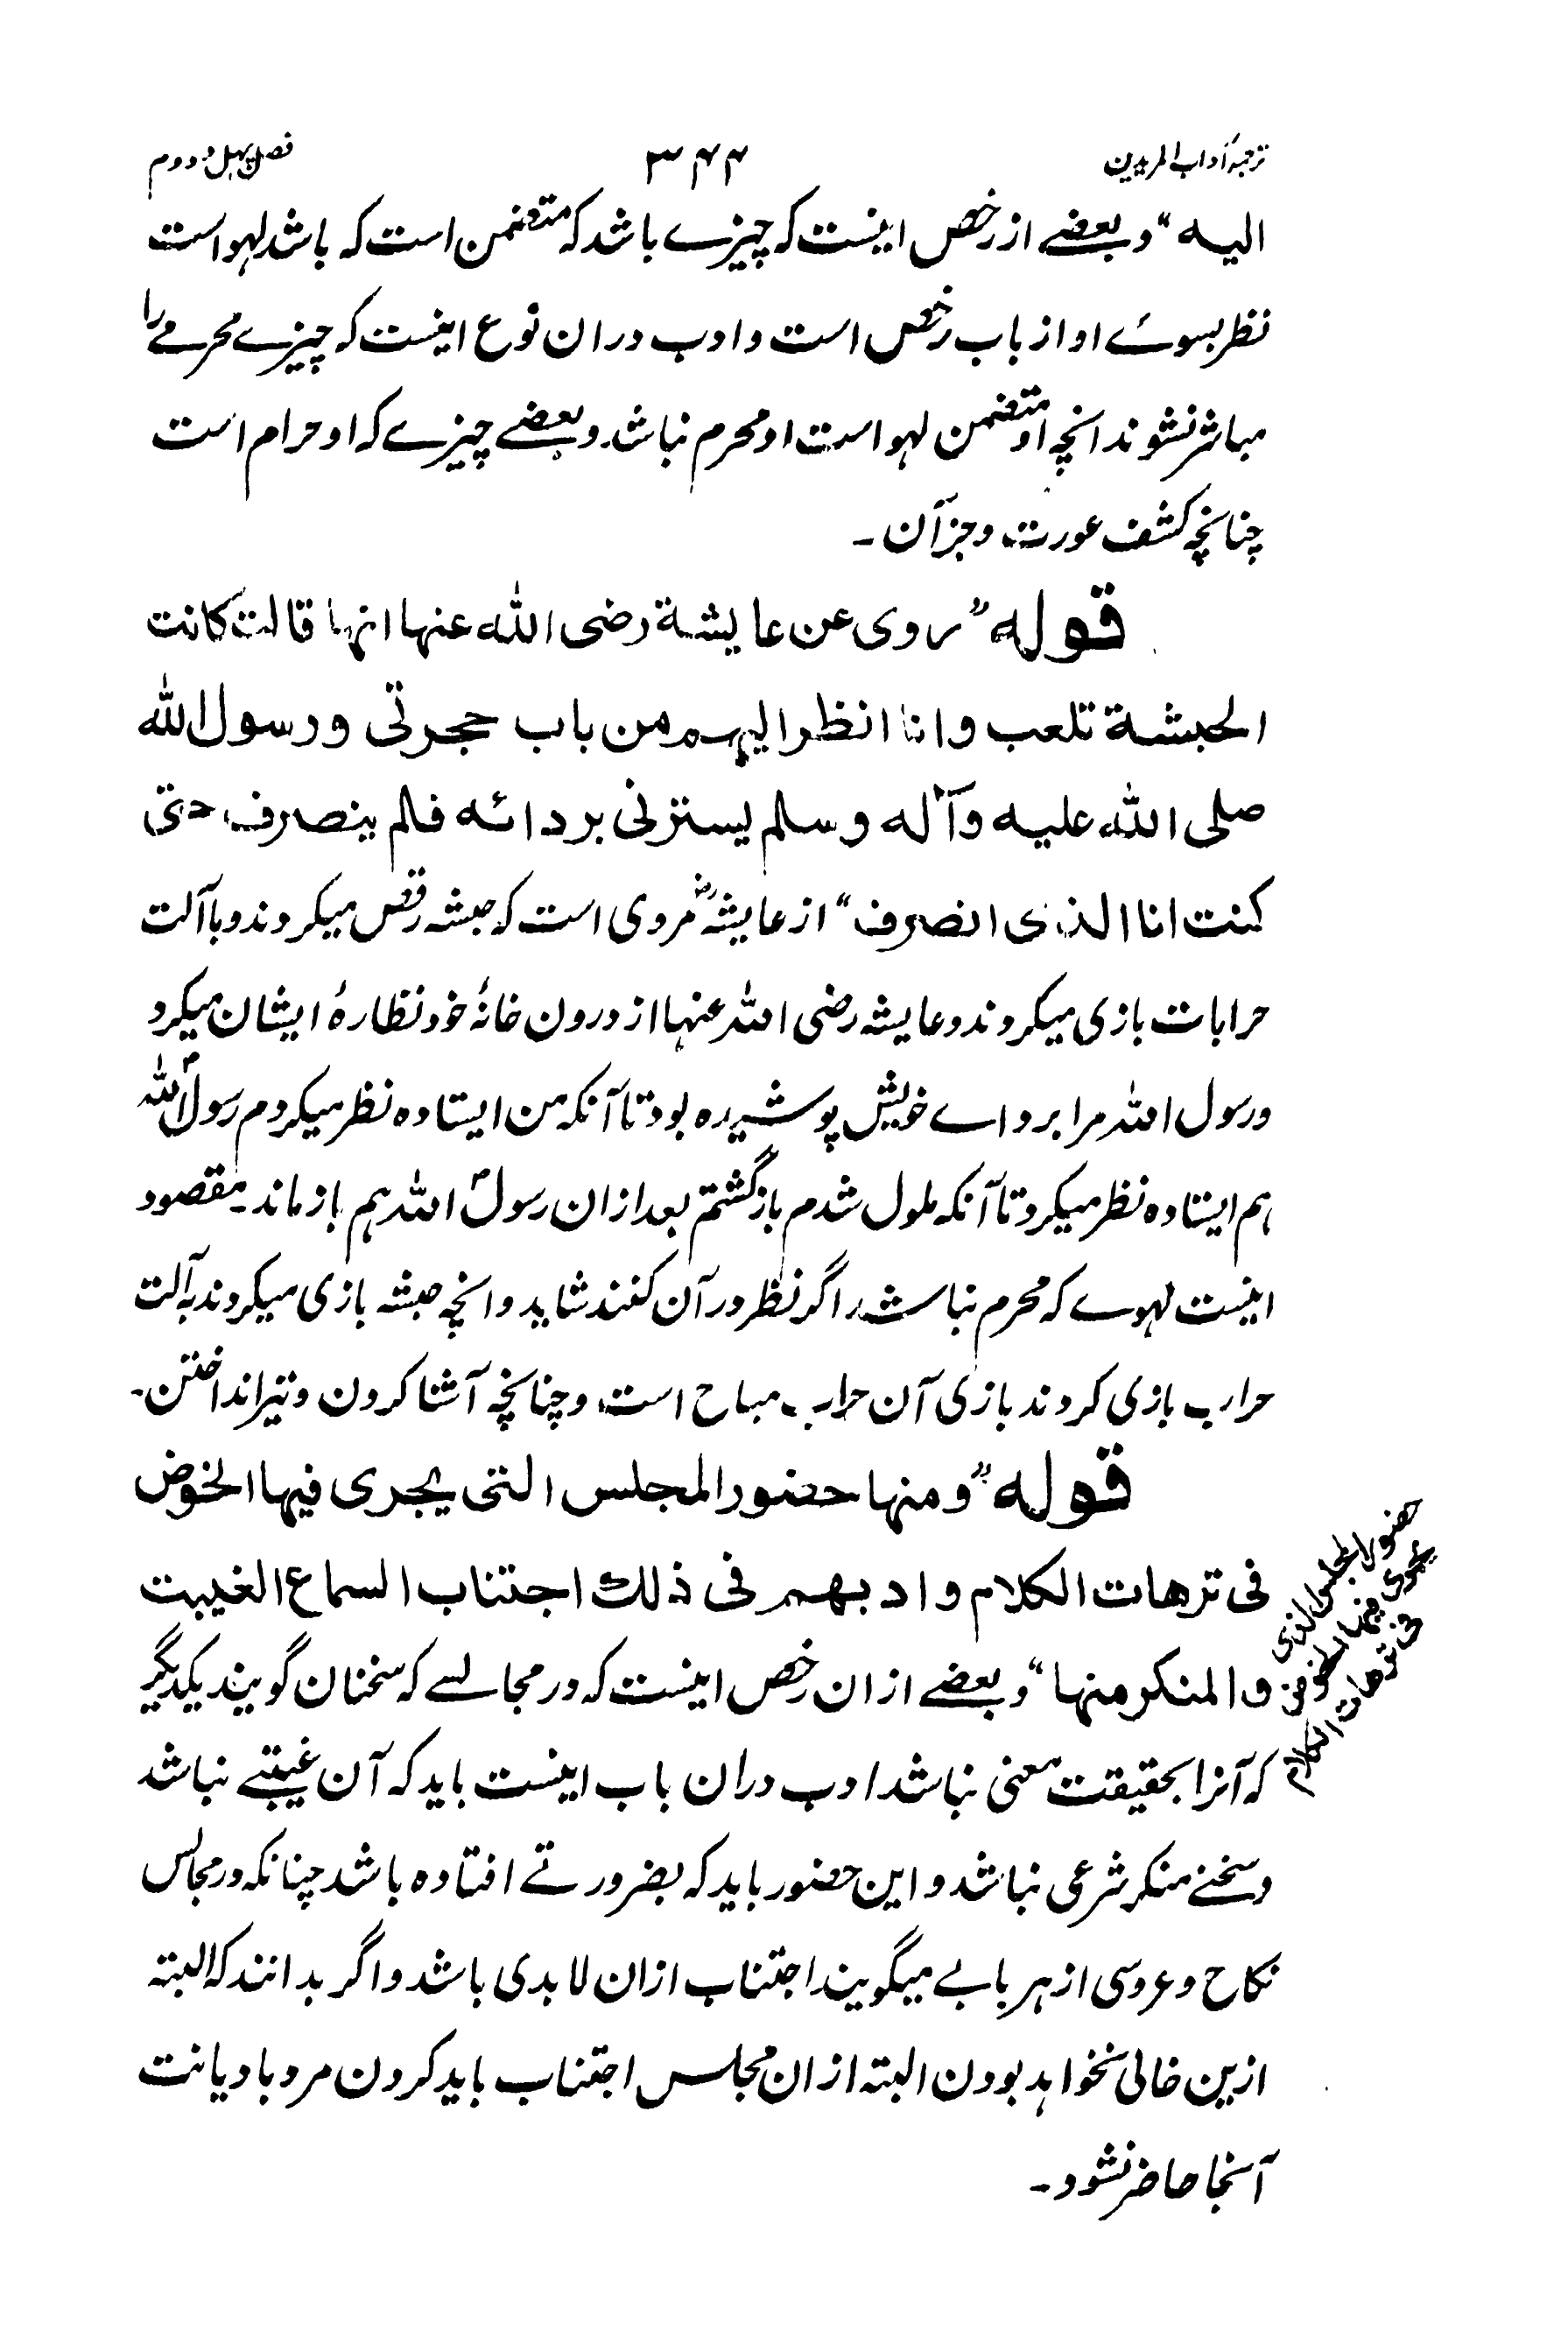 ترجمۂ آداب المریدین
۳۴۴
فصل چہل و دوم
الیہ“ و بعضے از رخص اینست کہ چیزے باشد کہ متضمن است کہ باشد لہو است
نظر بسوئے او از باب رخص است و ادب دران نوع اینست کہ چیزے محرمے را
مباشر نشوند انچہ او متضمن لہو است او محرم نباشد و بعضے چیزے کہ او حرام است
چنانچہ کشف عورت و جز آن ۔
قولہ ”روی عن عایشۃ رضی اللہ عنہا انہا قالت کانت
الحبشۃ تلعب وانا انظر الیہم من باب حجرتی ورسول اللہ
صلی اللہ علیہ وآلہ وسلم یسترنی بردائہ فلم ینصرف حتی
کنت انا الذی انصرف“ از عایشہؓ مروی است کہ حبشہ رقص میکردند و با آلت
حرابات بازی میکردند و عایشہ رضی اللہ عنہا از درون خانۂ خود نظارۂ ایشان میکرد
و رسول اللہ مرا برداے خویش پوشیدہ بود تا آنکہ من ایستادہ نظر میکردم رسولؐ اللہ
ہم ایستادہ نظر میکرد تا آنکہ ملول شدم باز گشتم بعد ازان رسولؐ اللہ ہم باز ماند ۔ مقصود
اینست لہوے کہ محرم نباشد اگر نظر در آن کنند شاید و انچہ حبشہ بازی میکردند بآلت
حراب بازی کردند بازی آن حراب مباح است و چنانچہ آشنا کردن و تیر انداختن ۔
قولہ ”ومنہا حضور المجلس التی یجری فیہا الخوض
فی ترھات الکلام وادبھم فی ذلک اجتناب السماع الغیبت
والمنکر منہا“ و بعضے ازان رخص اینست کہ در مجالسے کہ سخنان گویند یکدیگر
کہ آنرا بحقیقت معنی نباشد ادب دران باب اینست باید کہ آن غیبتے نباشد
و سخنے منکر شرعی نباشد و این حضور باید کہ بضرورتے افتادہ باشد چنانکہ در مجالس
نکاح و عروسی از ہر بابے میگویند اجتناب ازان لابدی باشد و اگر بدانند کہ البتہ
ازین خالی نخواہد بودن البتہ ازان مجلس اجتناب باید کردن مرد با دیانت
آنجا حاضر نشود ۔
حضور المجلس الذی
یجری فیہا الخوض
فی ترھات الکلام